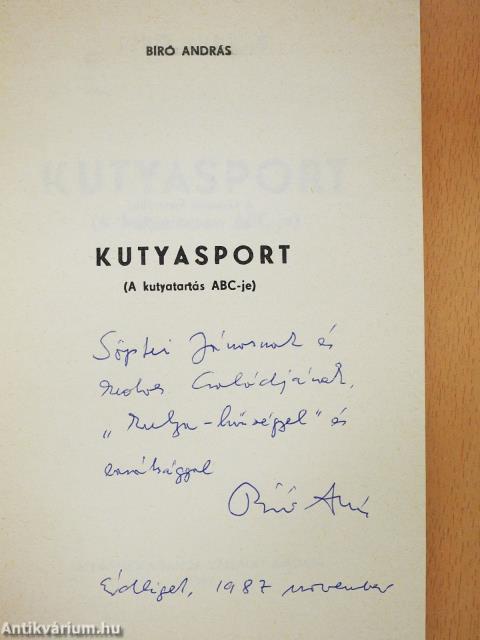 BIRÓ ANDRÁS
KUTYASPORT
(A kutyatartás ABC-je)
Jánosnak és
kedves Családjának,
„kutya-hűséggel" és
barátsággal
Bíró András
Érdliget, 1987 november
Antikvárium.hu